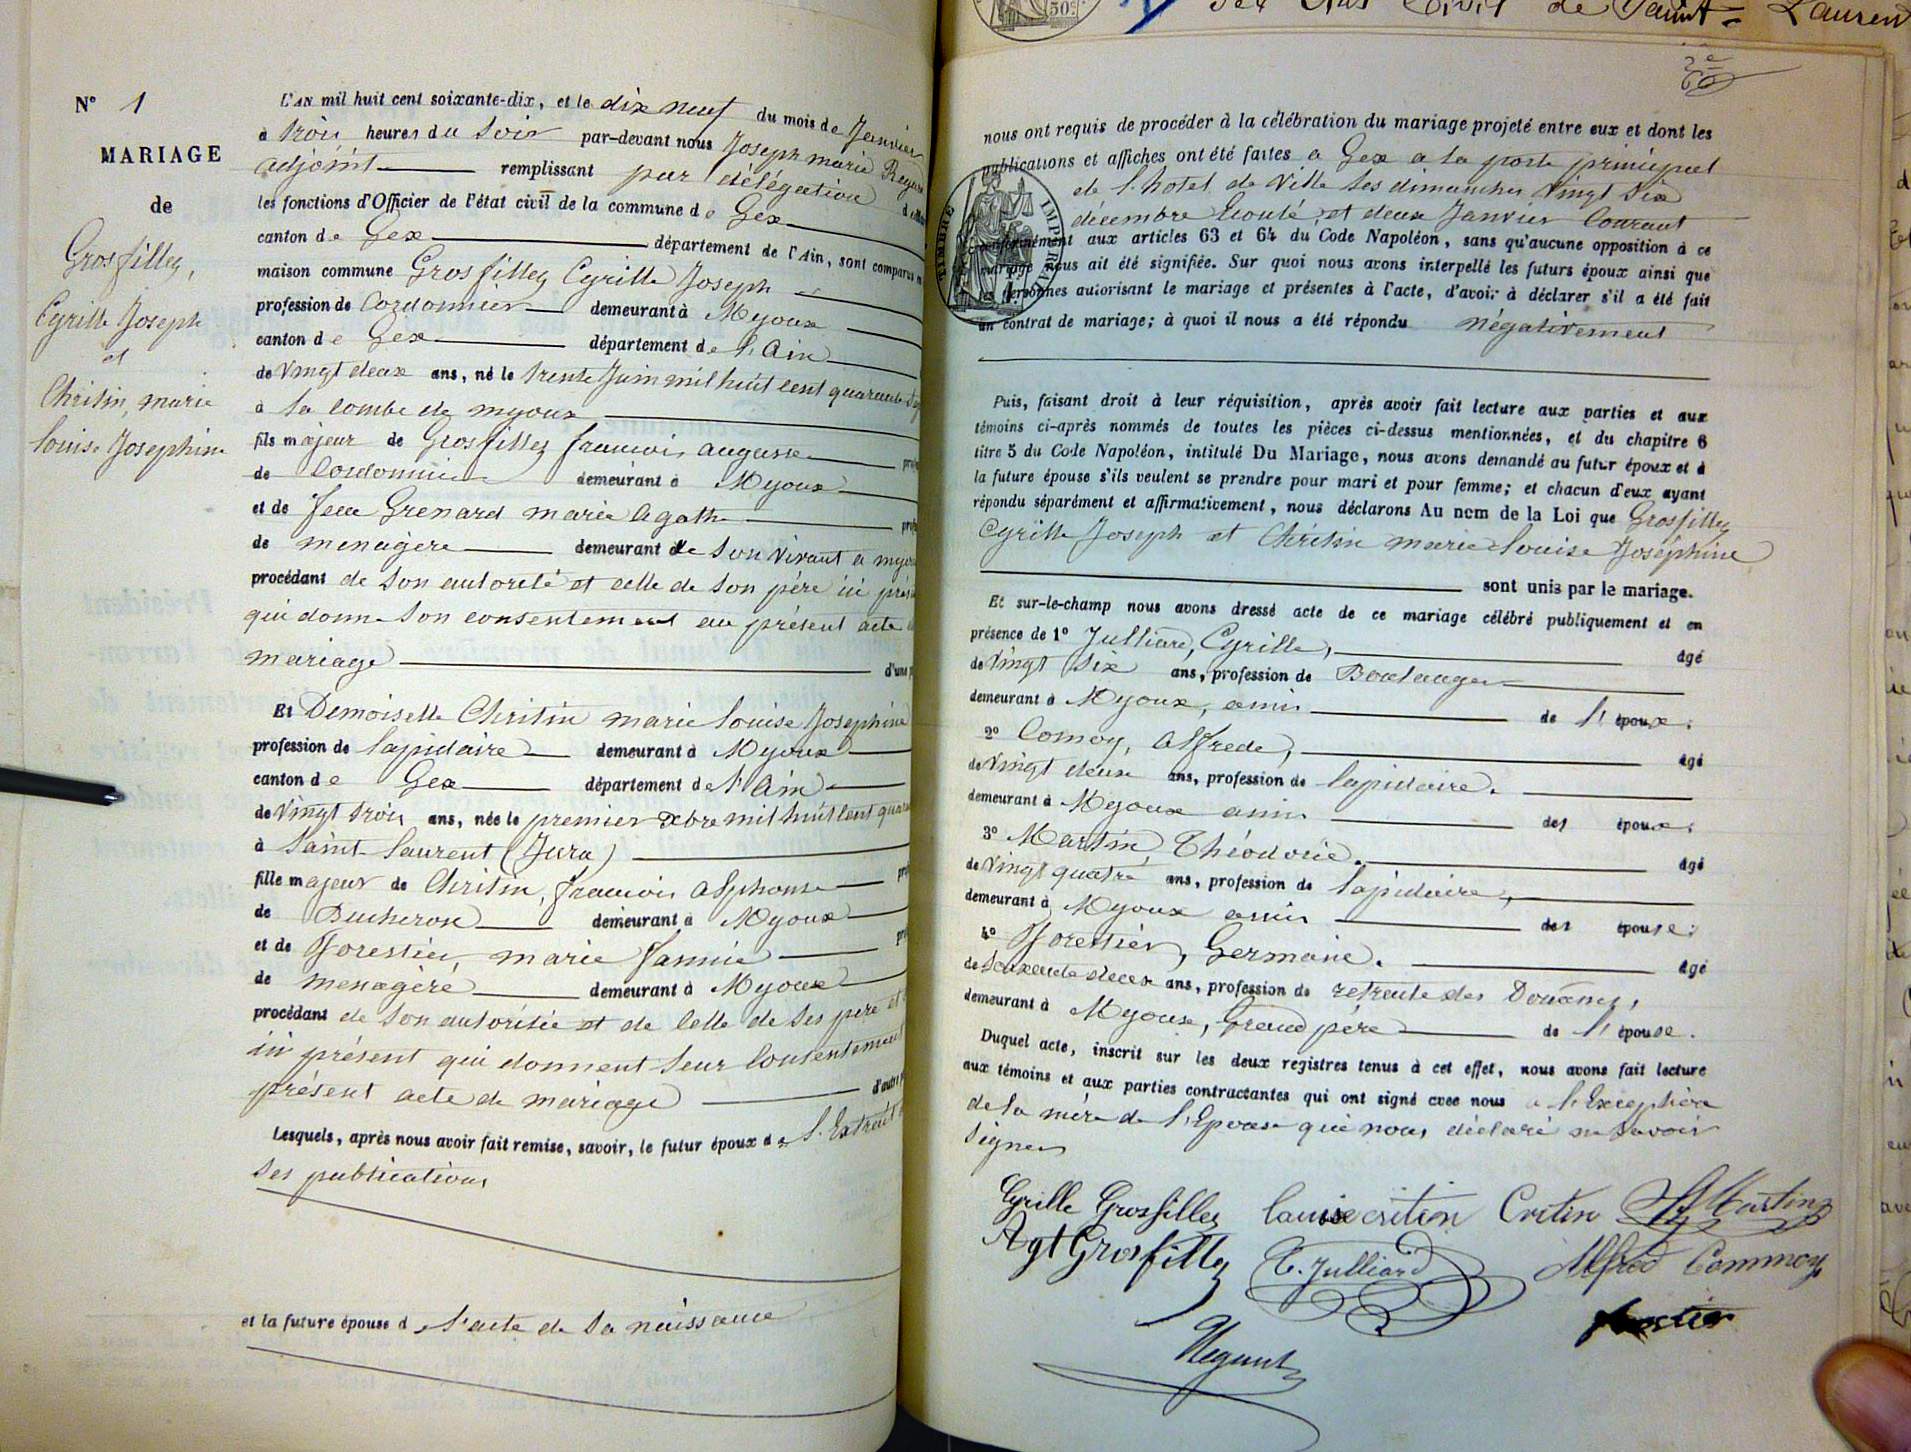 N° 1
MARIAGE
de
Grosfilley,
Cyrille Joseph
et
Chritin, marie
louise Josephine
L'AN mil huit cent soixante-dix, et le dix neuf du mois de Janvier
à trois heures du Soir par-devant nous Joseph marie
adjoint remplissant par délégation
les fonctions d'Officier de l'état civil de la commune de Gex
canton de Gex département de l'Ain, sont comparus
maison commune Grosfilley Cyrille Joseph
profession de Cordonnier demeurant à Myoux
canton de Gex département de l'Ain
de Vingt deux ans, né le trente Juin mil huit cent quarante
à la combe de myoux
fils majeur de Grosfilley francois auguste
de Cordonnier demeurant à Myoux
et de feue Grenard marie agathe
de menagère demeurant de Son vivant a
procédant de Son autorité et celle de Son père ici
qui donne Son consentement au présent acte
mariage
Et Demoiselle Chritin marie louise Josephine
profession de lapidaire demeurant à Myoux
canton de Gex département de l'Ain
de Vingt trois ans, née le premier xbre mil huit cent
à Saint-laurent (Jura)
fille majeur de Chritin, francois alphonse
de Bucheron demeurant à Myoux
et de forestier, marie fannie
de menagère demeurant à Myoux
procédant de Son autoritée et de celle de Ses pere et
ici présent qui donnent leur Consentement
présent acte de mariage
Lesquels, après nous avoir fait remise, savoir, le futur époux de l'Extrait
Ses publications
et la future épouse d l'acte de Sa naissance
50c
Civil de Saint-Laurent
nous ont requis de procéder à la célébration du mariage projeté entre eux et dont les
publications et affiches ont été faites a Gex a la porte principal
de l'hotel de Ville les dimanches Vingt Six
décembre Ecoulé, et deux Janvier Courant
TIMBRE IMPERIAL
conformément aux articles 63 et 64 du Code Napoléon, sans qu'aucune opposition à ce
mariage nous ait été signifiée. Sur quoi nous avons interpellé les futurs époux ainsi que
les personnes autorisant le mariage et présentes à l'acte, d'avoir à déclarer s'il a été fait
un contrat de mariage; à quoi il nous a été répondu négativement
Puis, faisant droit à leur réquisition, après avoir fait lecture aux parties et aux
témoins ci-après nommés de toutes les pièces ci-dessus mentionnées, et du chapitre 6
titre 5 du Code Napoléon, intitulé Du Mariage, nous avons demandé au futur époux et à
la future épouse s'ils veulent se prendre pour mari et pour femme; et chacun d'eux ayant
répondu séparément et affirmativement, nous déclarons Au nom de la Loi que Grosfilley
Cyrille Joseph et Chritin marie louise Joséphine
sont unis par le mariage.
Et sur-le-champ nous avons dressé acte de ce mariage célébré publiquement et en
présence de 1° Julliard, Cyrille, âgé
de Vingt Six ans, profession de Boulanger
demeurant à Myoux, amis de l' époux.
2° Comoy, alfrede, âgé
de Vingt deux ans, profession de lapidaire.
demeurant à Myoux amis des époux.
3° Martin Théodorie. âgé
de Vingt quatre ans, profession de lapidaire,
demeurant à Myoux amis des épouse.
4° forestier, Germaine. âgé
de Soixante deux ans, profession de retraite des Douanes,
demeurant à Myoux, Grand père de l' épouse.
Duquel acte, inscrit sur les deux registres tenus à cet effet, nous avons fait lecture
aux témoins et aux parties contractantes qui ont signé avec nous a l'Exception
de la mère de l'Epouse qui nous déclaré ne Savoir
Signer
Cyrille Grosfilley louise critin Critin Martin
Agt Grosfilley C. Julliard Alfred Commoy